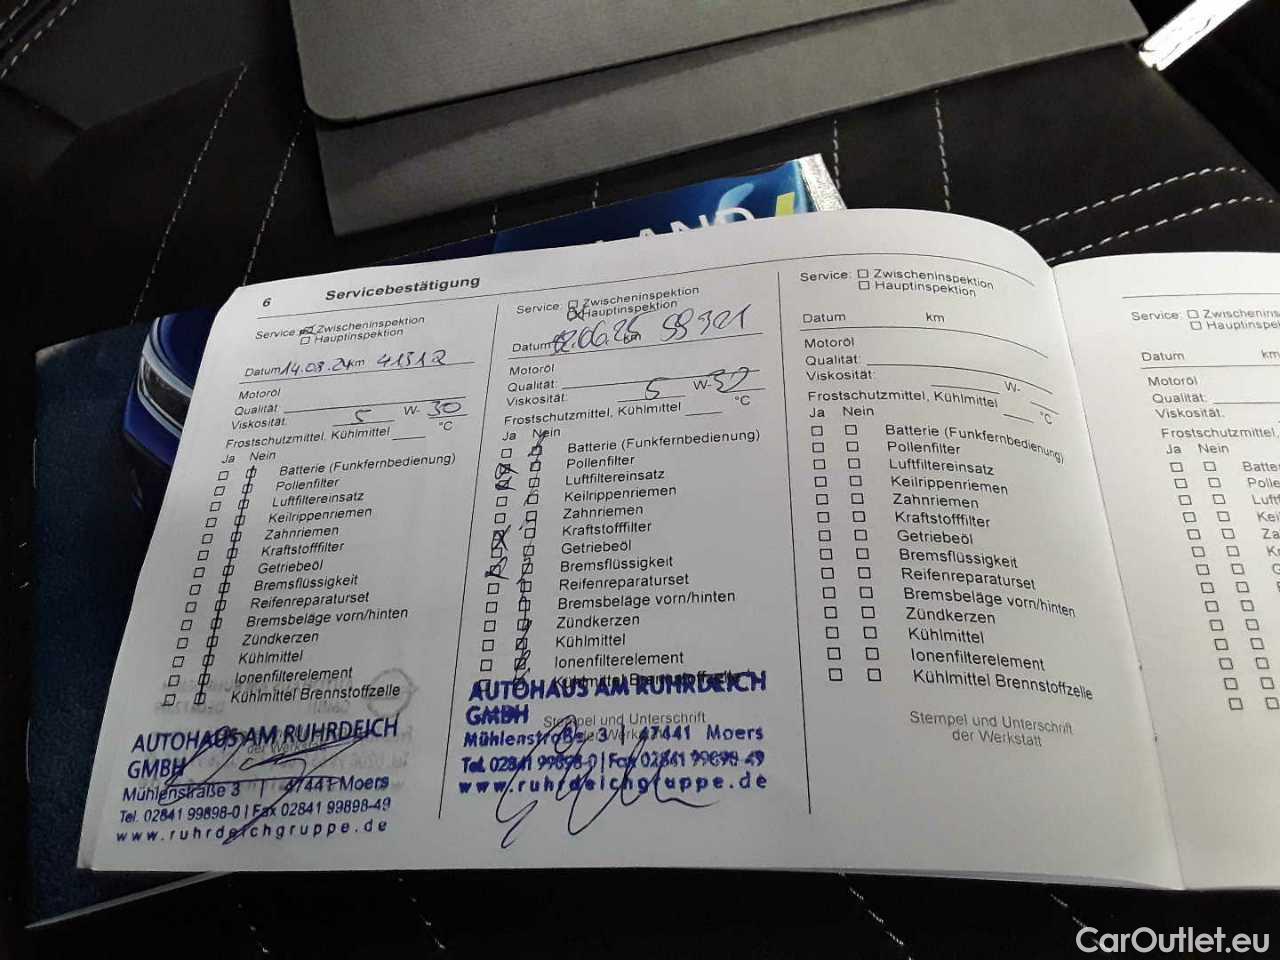 LAND
6 Servicebestätigung
Service: Zwischeninspektion
Hauptinspektion
Datum 14.03.24 km 41312
Motoröl
Qualität:
Viskosität: 5 W- 30
Frostschutzmittel, Kühlmittel °C
Ja Nein
Batterie (Funkfernbedienung)
Pollenfilter
Luftfiltereinsatz
Keilrippenriemen
Zahnriemen
Kraftstofffilter
Getriebeöl
Bremsflüssigkeit
Reifenreparaturset
Bremsbeläge vorn/hinten
Zündkerzen
Kühlmittel
Ionenfilterelement
Kühlmittel Brennstoffzelle
der Werkstatt
AUTOHAUS AM RUHRDEICH
GMBH
Mühlenstraße 3 | 47441 Moers
Tel. 02841 99898-0 | Fax 02841 99898-49
www.ruhrdeichgruppe.de
Service: Zwischeninspektion
Hauptinspektion
Datum 12.06.25 km 59321
Motoröl
Qualität:
Viskosität: 5 W- 30
Frostschutzmittel, Kühlmittel °C
Ja Nein
Batterie (Funkfernbedienung)
Pollenfilter
Luftfiltereinsatz
Keilrippenriemen
Zahnriemen
Kraftstofffilter
Getriebeöl
Bremsflüssigkeit
Reifenreparaturset
Bremsbeläge vorn/hinten
Zündkerzen
Kühlmittel
Ionenfilterelement
Kühlmittel Brennstoffzelle
AUTOHAUS AM RUHRDEICH
GMBH
Stempel und Unterschrift
der Werkstatt
Mühlenstraße 3 | 47441 Moers
Tel. 02841 99898-0 | Fax 02841 99898-49
www.ruhrdeichgruppe.de
Service: Zwischeninspektion
Hauptinspektion
Datum km
Motoröl
Qualität:
Viskosität: W-
Frostschutzmittel, Kühlmittel °C
Ja Nein
Batterie (Funkfernbedienung)
Pollenfilter
Luftfiltereinsatz
Keilrippenriemen
Zahnriemen
Kraftstofffilter
Getriebeöl
Bremsflüssigkeit
Reifenreparaturset
Bremsbeläge vorn/hinten
Zündkerzen
Kühlmittel
Ionenfilterelement
Kühlmittel Brennstoffzelle
Stempel und Unterschrift
der Werkstatt
Service:
Datum km
Motoröl
Qualität:
Viskosität:
Frostschutzmittel,
Ja Nein
CarOutlet.eu